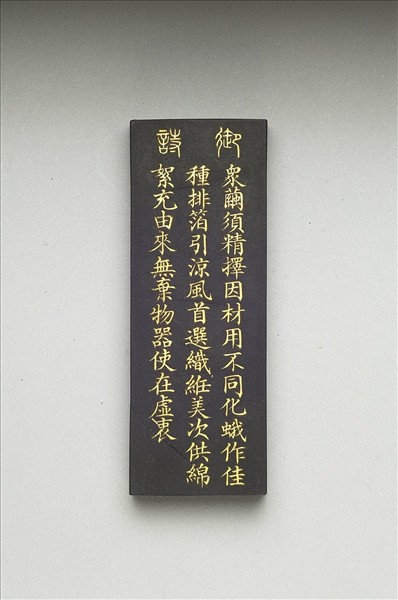 御詩
衆繭須精擇因材用不同化蛾作佳
種排箔引涼風首選織絍美次供綿
絮充由來無棄物器使在虛衷